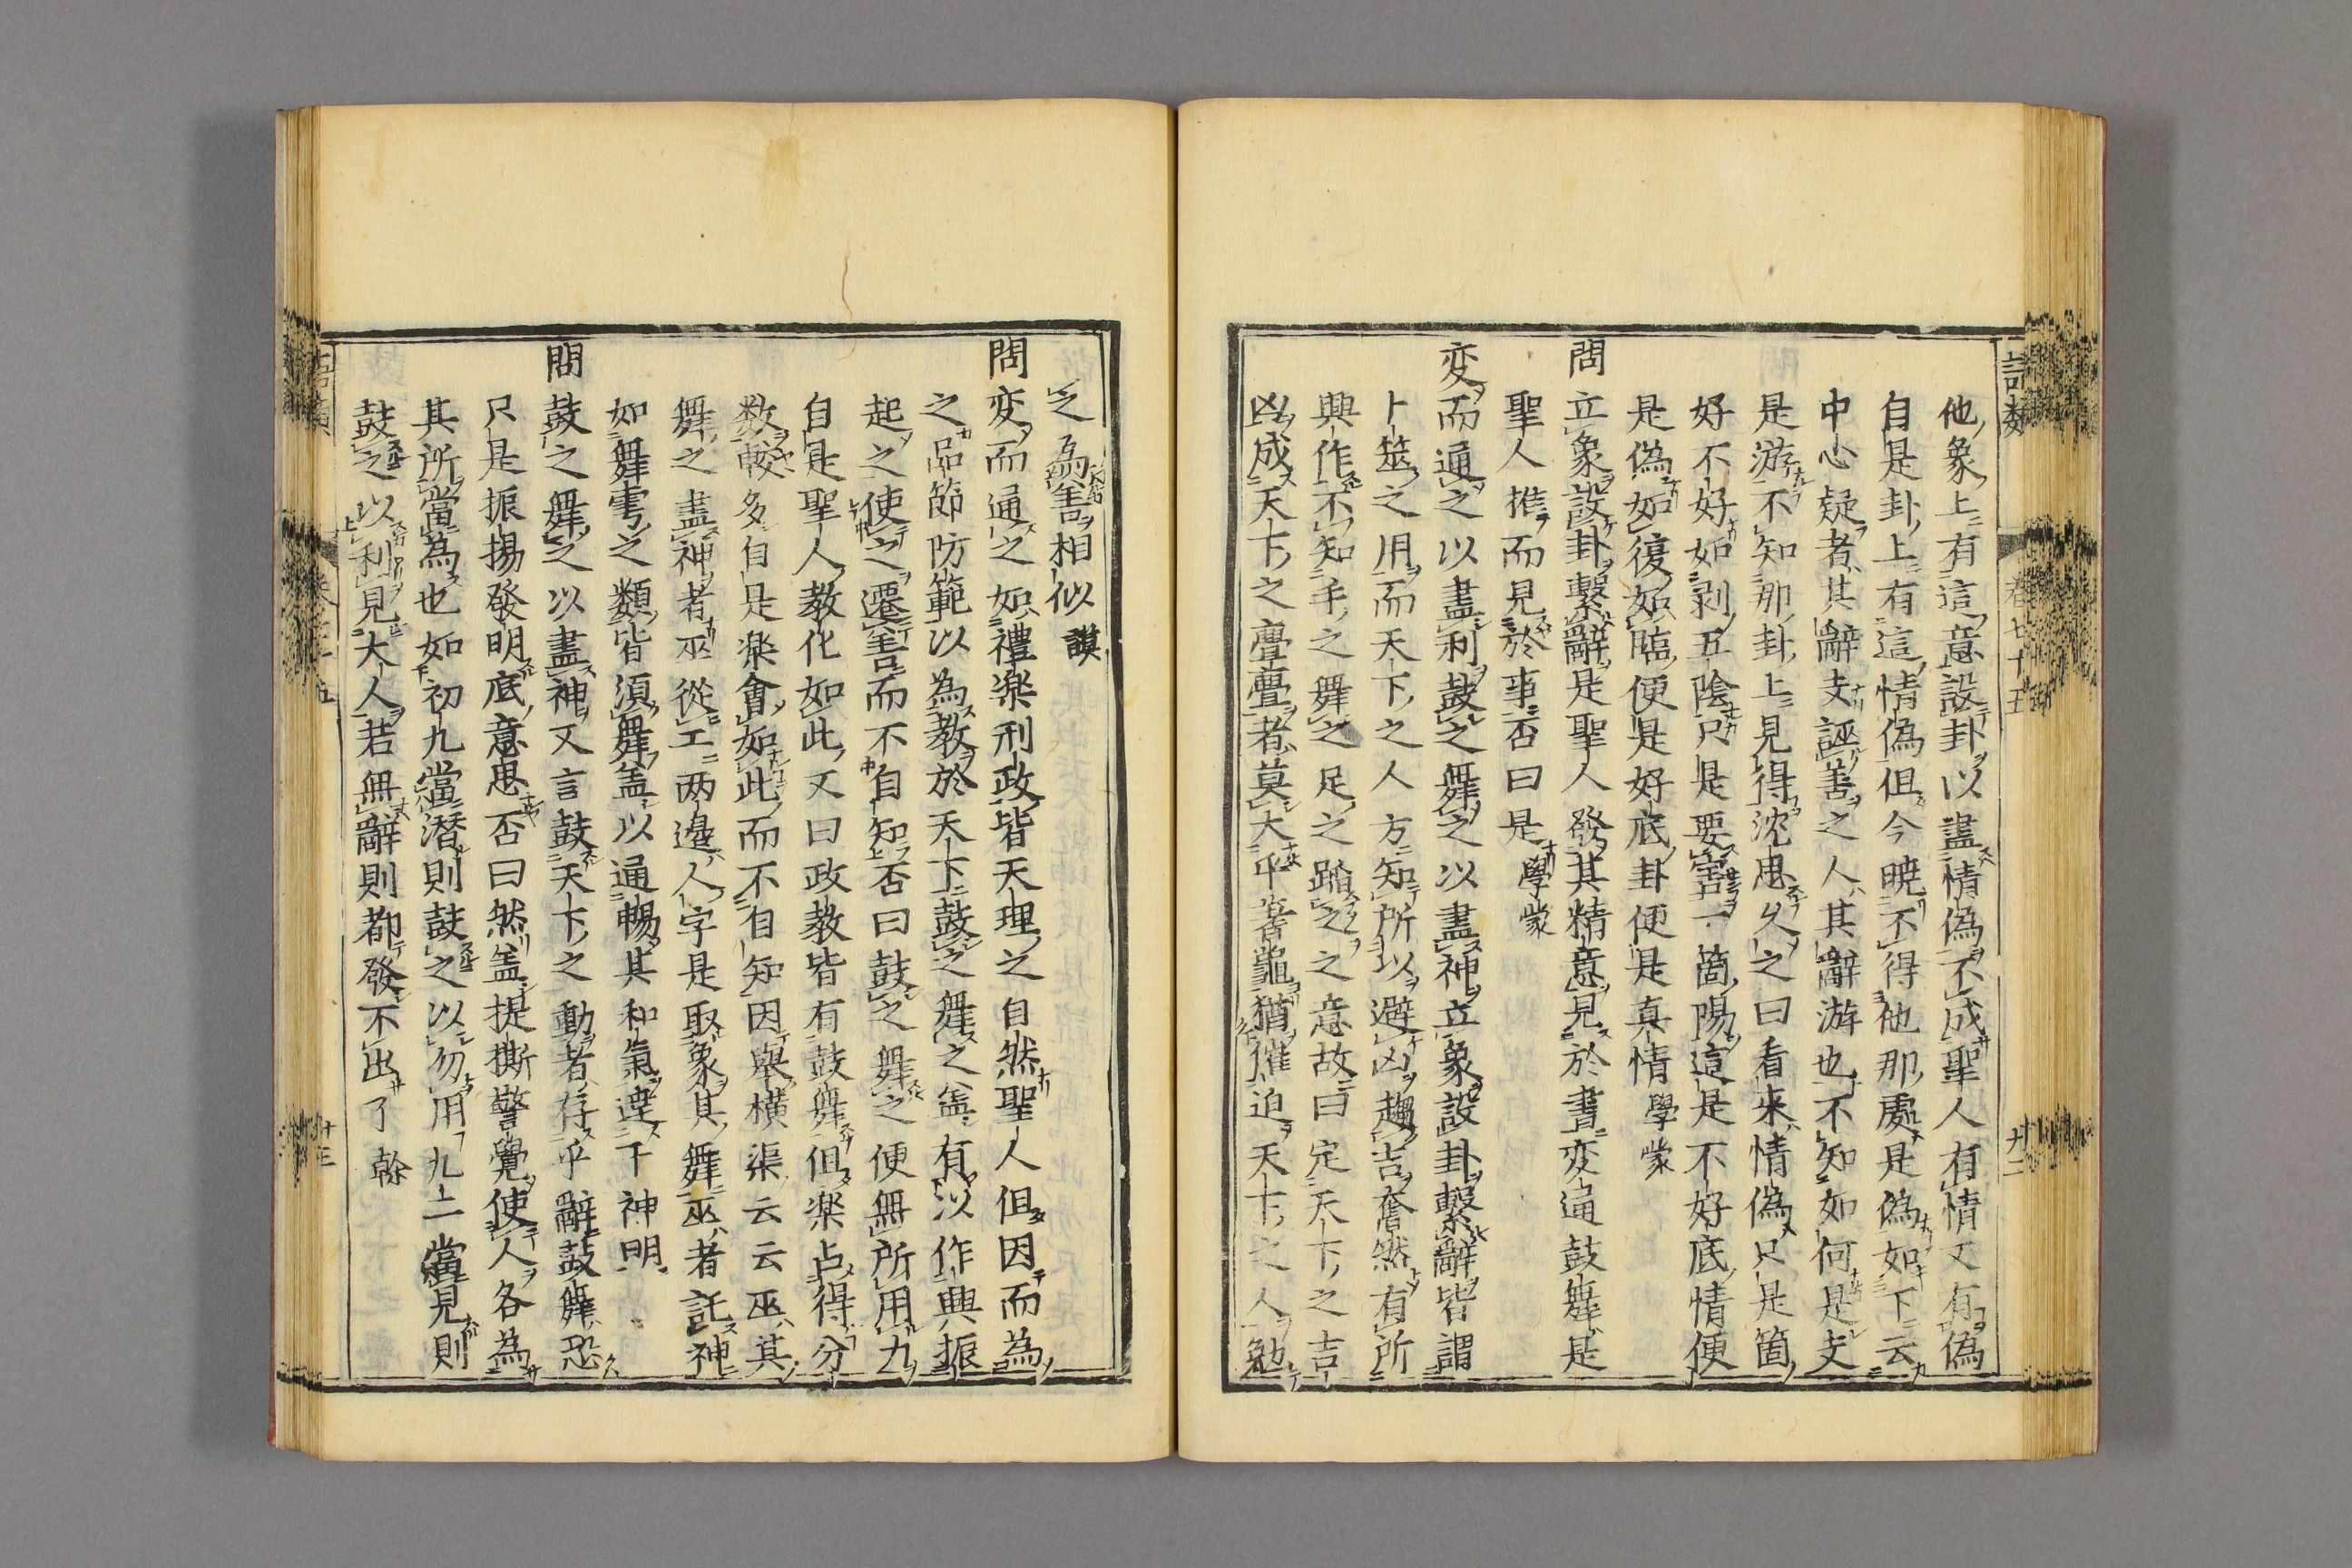 他象上有這意設卦以盡情偽不成聖人有情又有偽
自是卦上有這情偽但今曉不得他那處是偽如下云
中心疑者其辭支誣善之人其辭游也不知如何是支
是游不知那卦上見得沈思久之曰看来情偽只是箇
好不好如剥五陰只是要害一箇陽這是不好底情便
是偽如復如臨便是好底卦便是真情 學蒙
問立象設卦繫辭是聖人發其精意見於書変通鼓舞是
聖人推而見於事否曰是 學蒙
変而通之以盡利鼓之舞之以盡神立象設卦繫辭皆謂
卜筮之用而天下之人方知所以避凶趨吉奮然有所
興作不知手之舞之足之蹈之之意故曰定天下之吉
凶成天下之亹亹者莫大乎蓍龜猶催迫天下之人勉
之為善相似 謨
問変而通之如禮楽刑政皆天理之自然聖人但因而為
之品節防範以為教於天下鼓之舞之盖有以作興振
起之使之遷善而不自知否曰鼓之舞之便無所用力
自是聖人教化如此又曰政教皆有鼓舞但楽占得分
数較多自是楽會如此而不自知因舉横渠云云巫其
舞之盡神者巫從工两邉人字是取象其舞巫者託神
如舞雩之類皆須舞盖以通暢其和氣達于神明
問鼓之舞之以盡神又言鼓天下之動者存乎辭鼓舞恐
只是振揚發明底意思否曰然盖提撕警覺使人各為
其所當為也如初九當潛則鼓之以勿用九二當見則
鼓之以利見大人若無辭則都發不出了 榦
語類
卷七十五